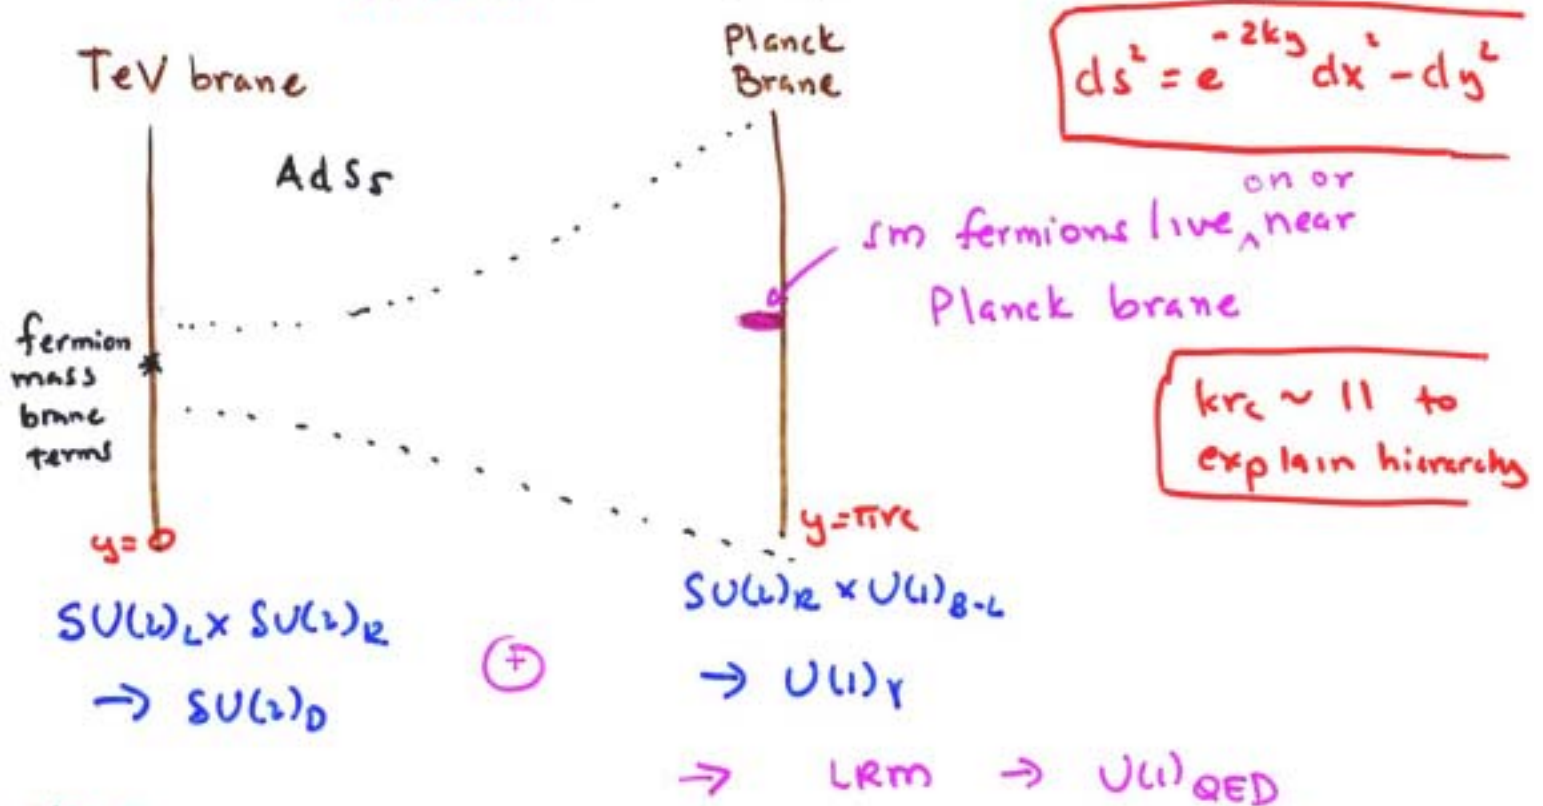 TeV brane
Planck
Brane
ds² = e^{-2ky} dx² - dy²
AdS₅
on or
SM fermions live ‸ near
Planck brane
fermion
mass
brane
terms
krc ~ 11 to
explain hierarchy
y=0
y=πrc
SU(2)_L × SU(2)_R
→ SU(2)_D
+
SU(2)_R × U(1)_{B-L}
→ U(1)_Y
→ LRM → U(1)_{QED}